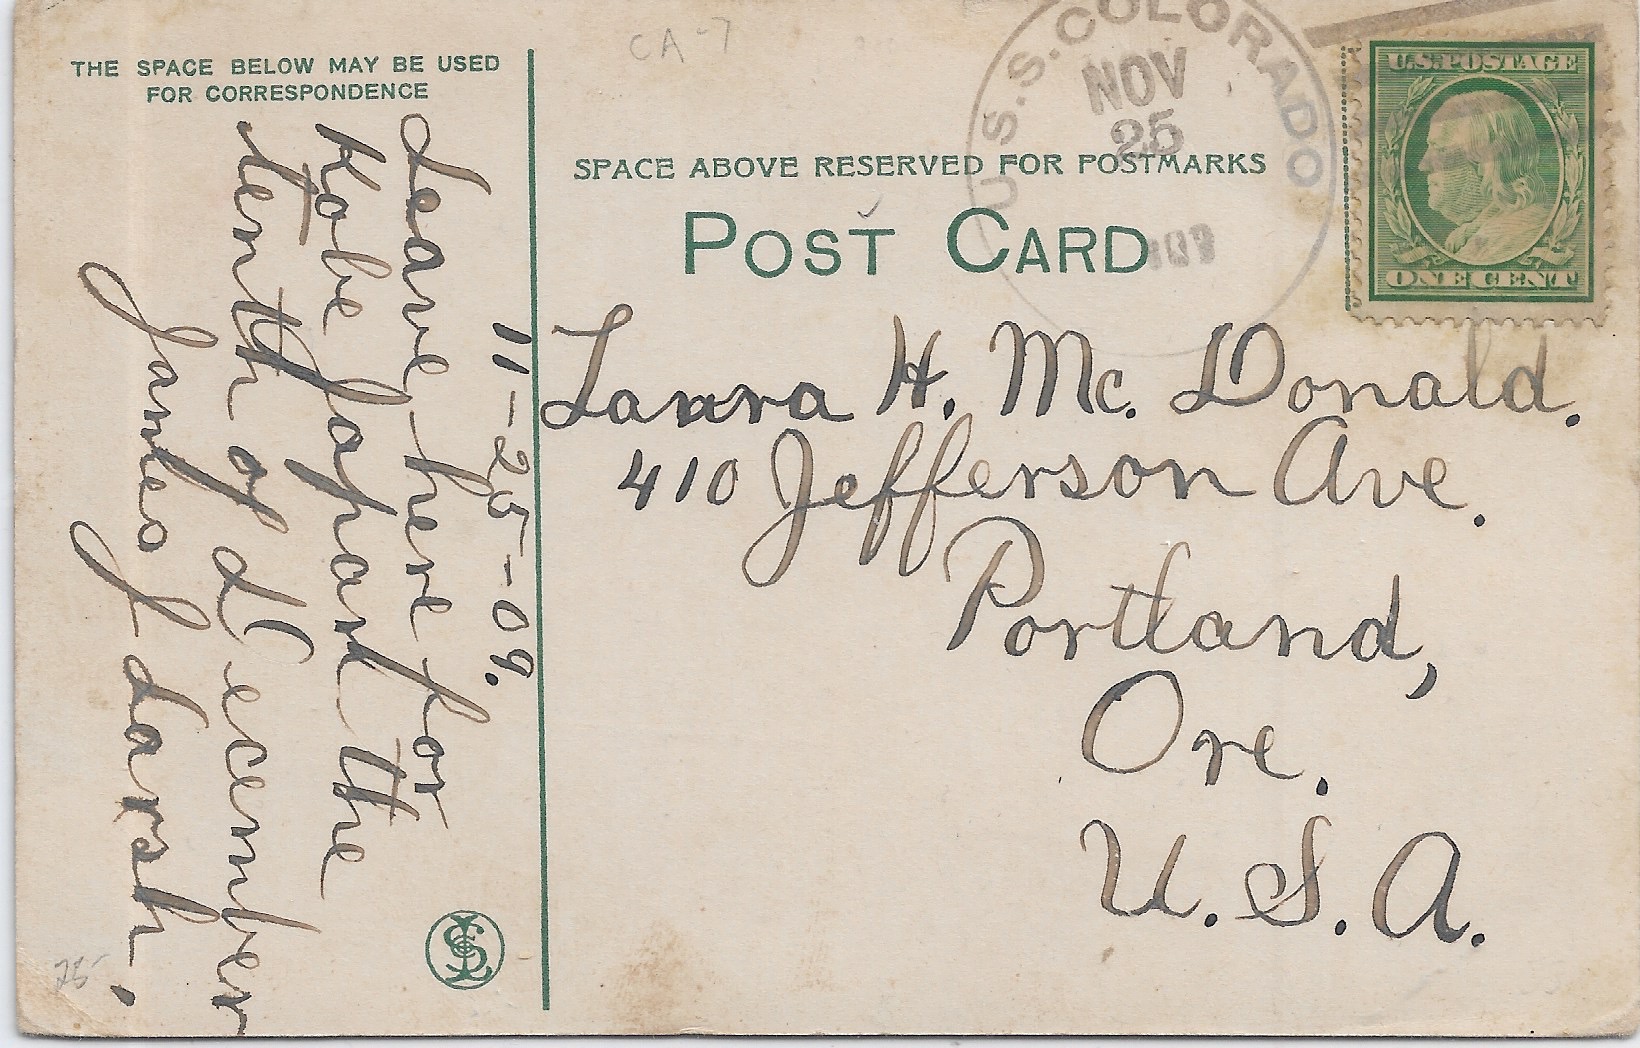 CA-7
THE SPACE BELOW MAY BE USED
FOR CORRESPONDENCE
U.S.S. COLORADO
NOV
25
U.S. POSTAGE
ONE CENT
SPACE ABOVE RESERVED FOR POSTMARKS
POST CARD
11-25-09.
Leave here for
Kobe Japan the
tenth of December
James J Larsh.
Laura H. Mc. Donald.
410 Jefferson Ave.
Portland,
Ore.
U.S.A.